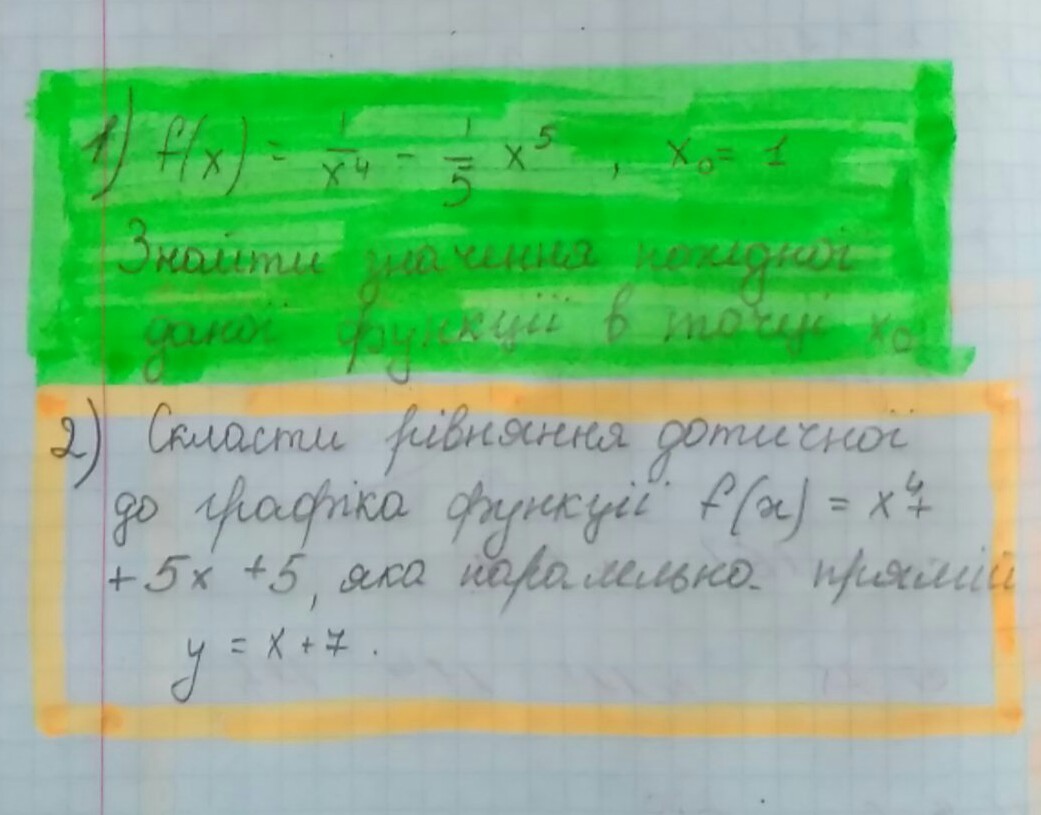 1) f(x) = 1/x⁴ - 1/5 x⁵ , x₀ = 1
Знайти значення похідної
даної функції в точці x₀
2) Скласти рівняння дотичної
до графіка функції f(x) = x⁴ +
+ 5x + 5, яка паралельна прямій
y = x + 7 .